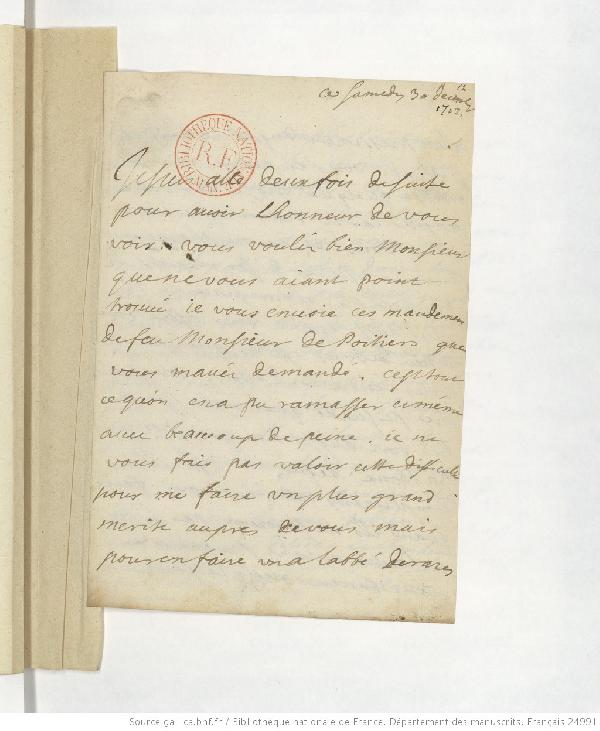 ce samedy 30 decemb
1702.
BIBLIOTHEQUE NATIONALE
R.F.
Je suis allé deux fois de suite
pour avoir lhonneur de vous
voir. vous voulés bien Monsieur
que ne vous aiant point
trouvé ie vous envoie ces mandemens
de feu Monsieur de Poitiers que
vous mavés demandé. cest tout
ce quon en a pu ramasser et méme
avec beaucoup de peine. ie ne
vous fais pas valoir cette difficulté
pour me faire un plus grand
merite aupres de vous mais
pour en faire un a labbé
Source gallica.bnf.fr / Bibliothèque nationale de France. Département des manuscrits. Français 24991